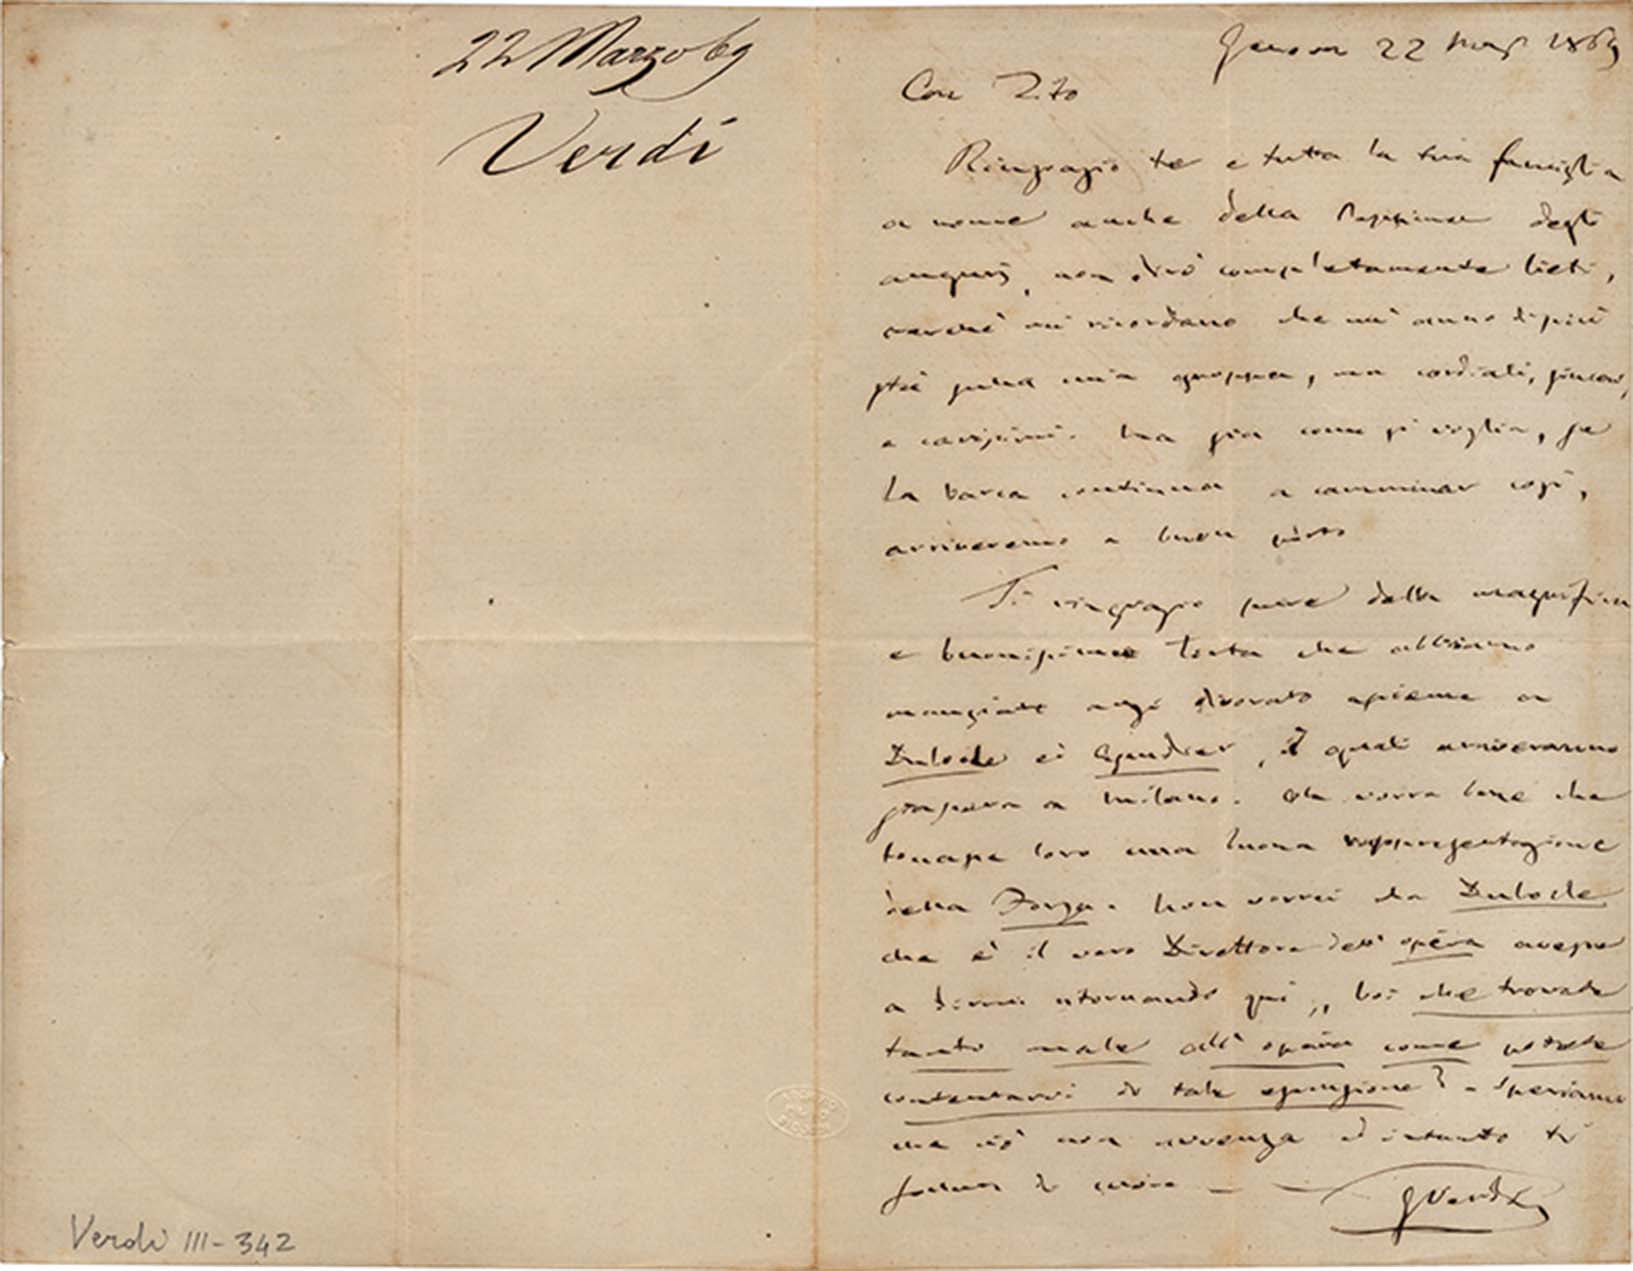 22 Marzo 69
Verdi
Genova 22 Marz 1869
Car Tito
Ringrazio te e tutta la tua famiglia
a nome anche della Peppina degli
augurj, non dirò completamente lieti,
perché mi ricordano che un' anno di più
stà sulla mia groppa, ma cordiali, sinceri,
e carissimi. Ma sia come si voglia, se
la barca continua a camminar così,
arriveremo a buon porto
Ti ringrazio pure della magnifica
e buonissima Torta che abbiamo
mangiato anzi divorato assieme a
Dulocle ed Escudier, i quali arriveranno
stassera a Milano. vorrà bene che
toccasse loro una buona rappresentazione
della Forza. Non vorrei che Dulocle
che è il vero Direttore dell' opéra avesse
a dirmi ritornando qui „ Voi che trovate
tanto male all' opéra come potete
contentarvi di tale esecuzione? - Speriamo
che ciò non avvenga ed intanto ti
saluto di cuore
G Verdi
Verdi III-342